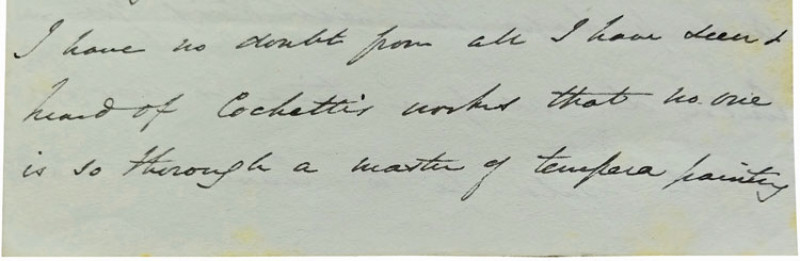 I have no doubt from all I have seen &
heard of Cochetti's works that no one
is so thorough a master of tempera painting